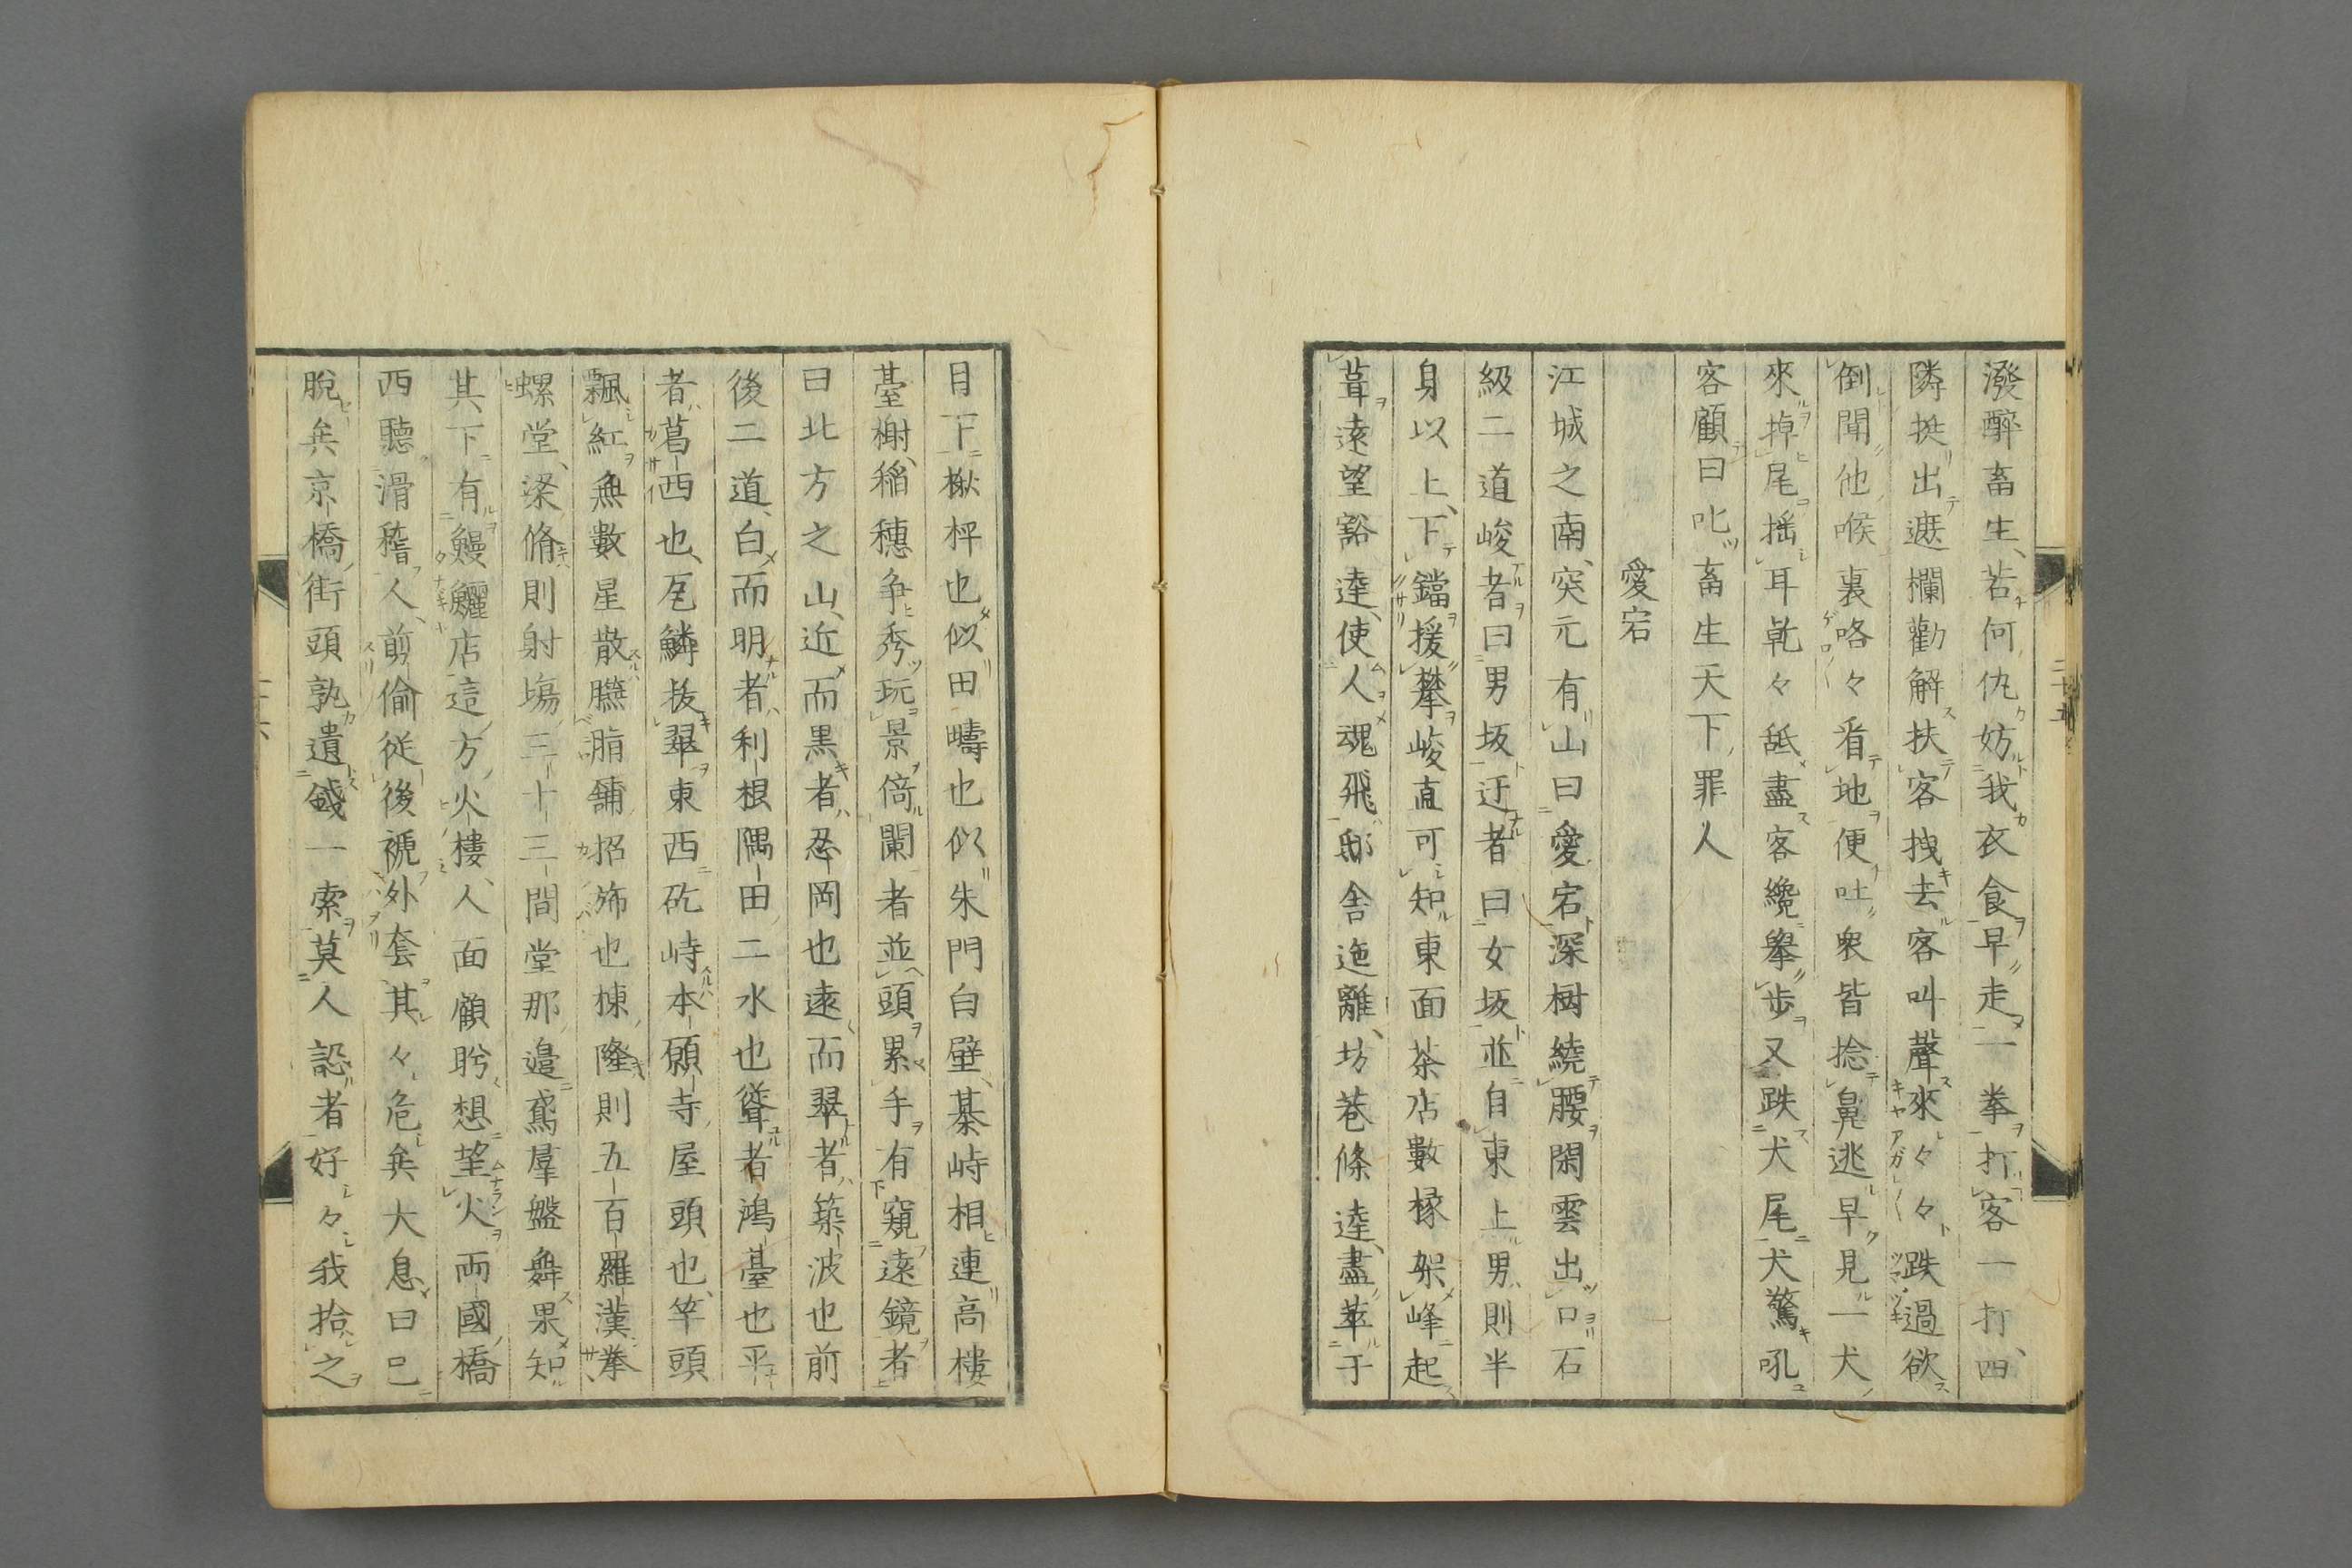 潑醉畜生、若何仇妨我衣食早走一拳打客一打、四
隣挺出遮欄勸解扶客拽去客叫聲來々々跌過欲
倒聞他喉裏咯々看地便吐衆皆捻鼻逃早見一犬
來掉尾揺耳乾々舐盡客纔擧歩又跌犬尾犬驚吼
客顧曰叱畜生天下罪人
愛宕
江城之南、突元有山曰愛宕深樹繞腰閑雲出口石
級二道峻者曰男坂迂者曰女坂並自東上男則半
身以上、下鐺援攀峻直可知東面茶店數椽架峰起
葺遠望豁達、使人魂飛邸舍迤離、坊巷條達、盡萃于
目下楸枰也似田疇也似朱門白壁、棊峙相連高樓
臺榭、稲穗争秀玩景倚闌者並頭累手有窺遠鏡者
曰北方之山、近而黒者忍岡也遠而翠者築波也前
後二道、白而明者利根隅田二水也聳者鴻臺也平
者葛西也、瓦鱗抜翠東西矻峙本願寺屋頭也、竿頭
飄紅魚數星散臙脂舗招斾也棟隆則五百羅漢拳
螺堂、梁脩則射塲三十三間堂那邉鳶羣盤舞果知
其下有鰻鱺店這方火樓、人面顧盻想望火兩國橋
西聽滑稽人、剪偷從後褫外套其々危矣大息曰已
脱矣京橋街頭孰遺錢一索莫人認者好々我拾之
二十五
二十六